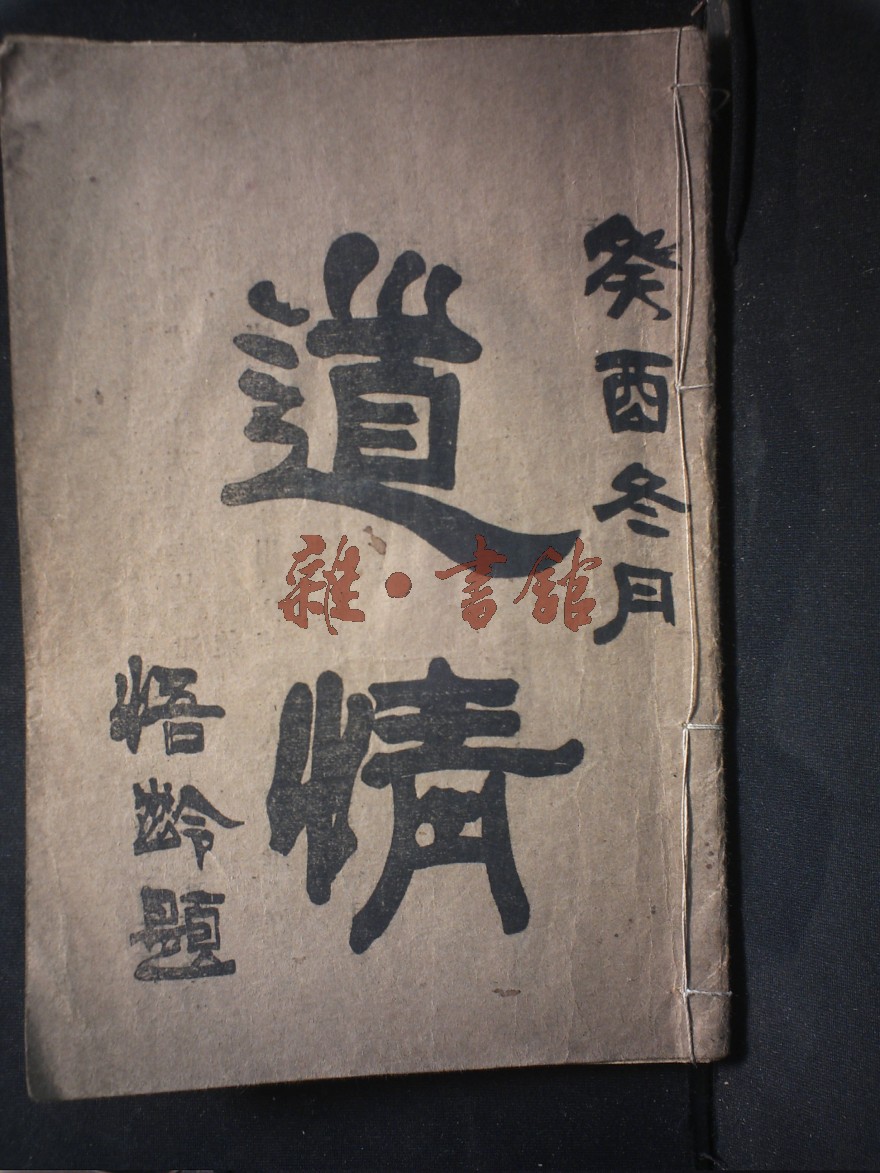 癸酉冬月
道情
悟齡題
雜·書館